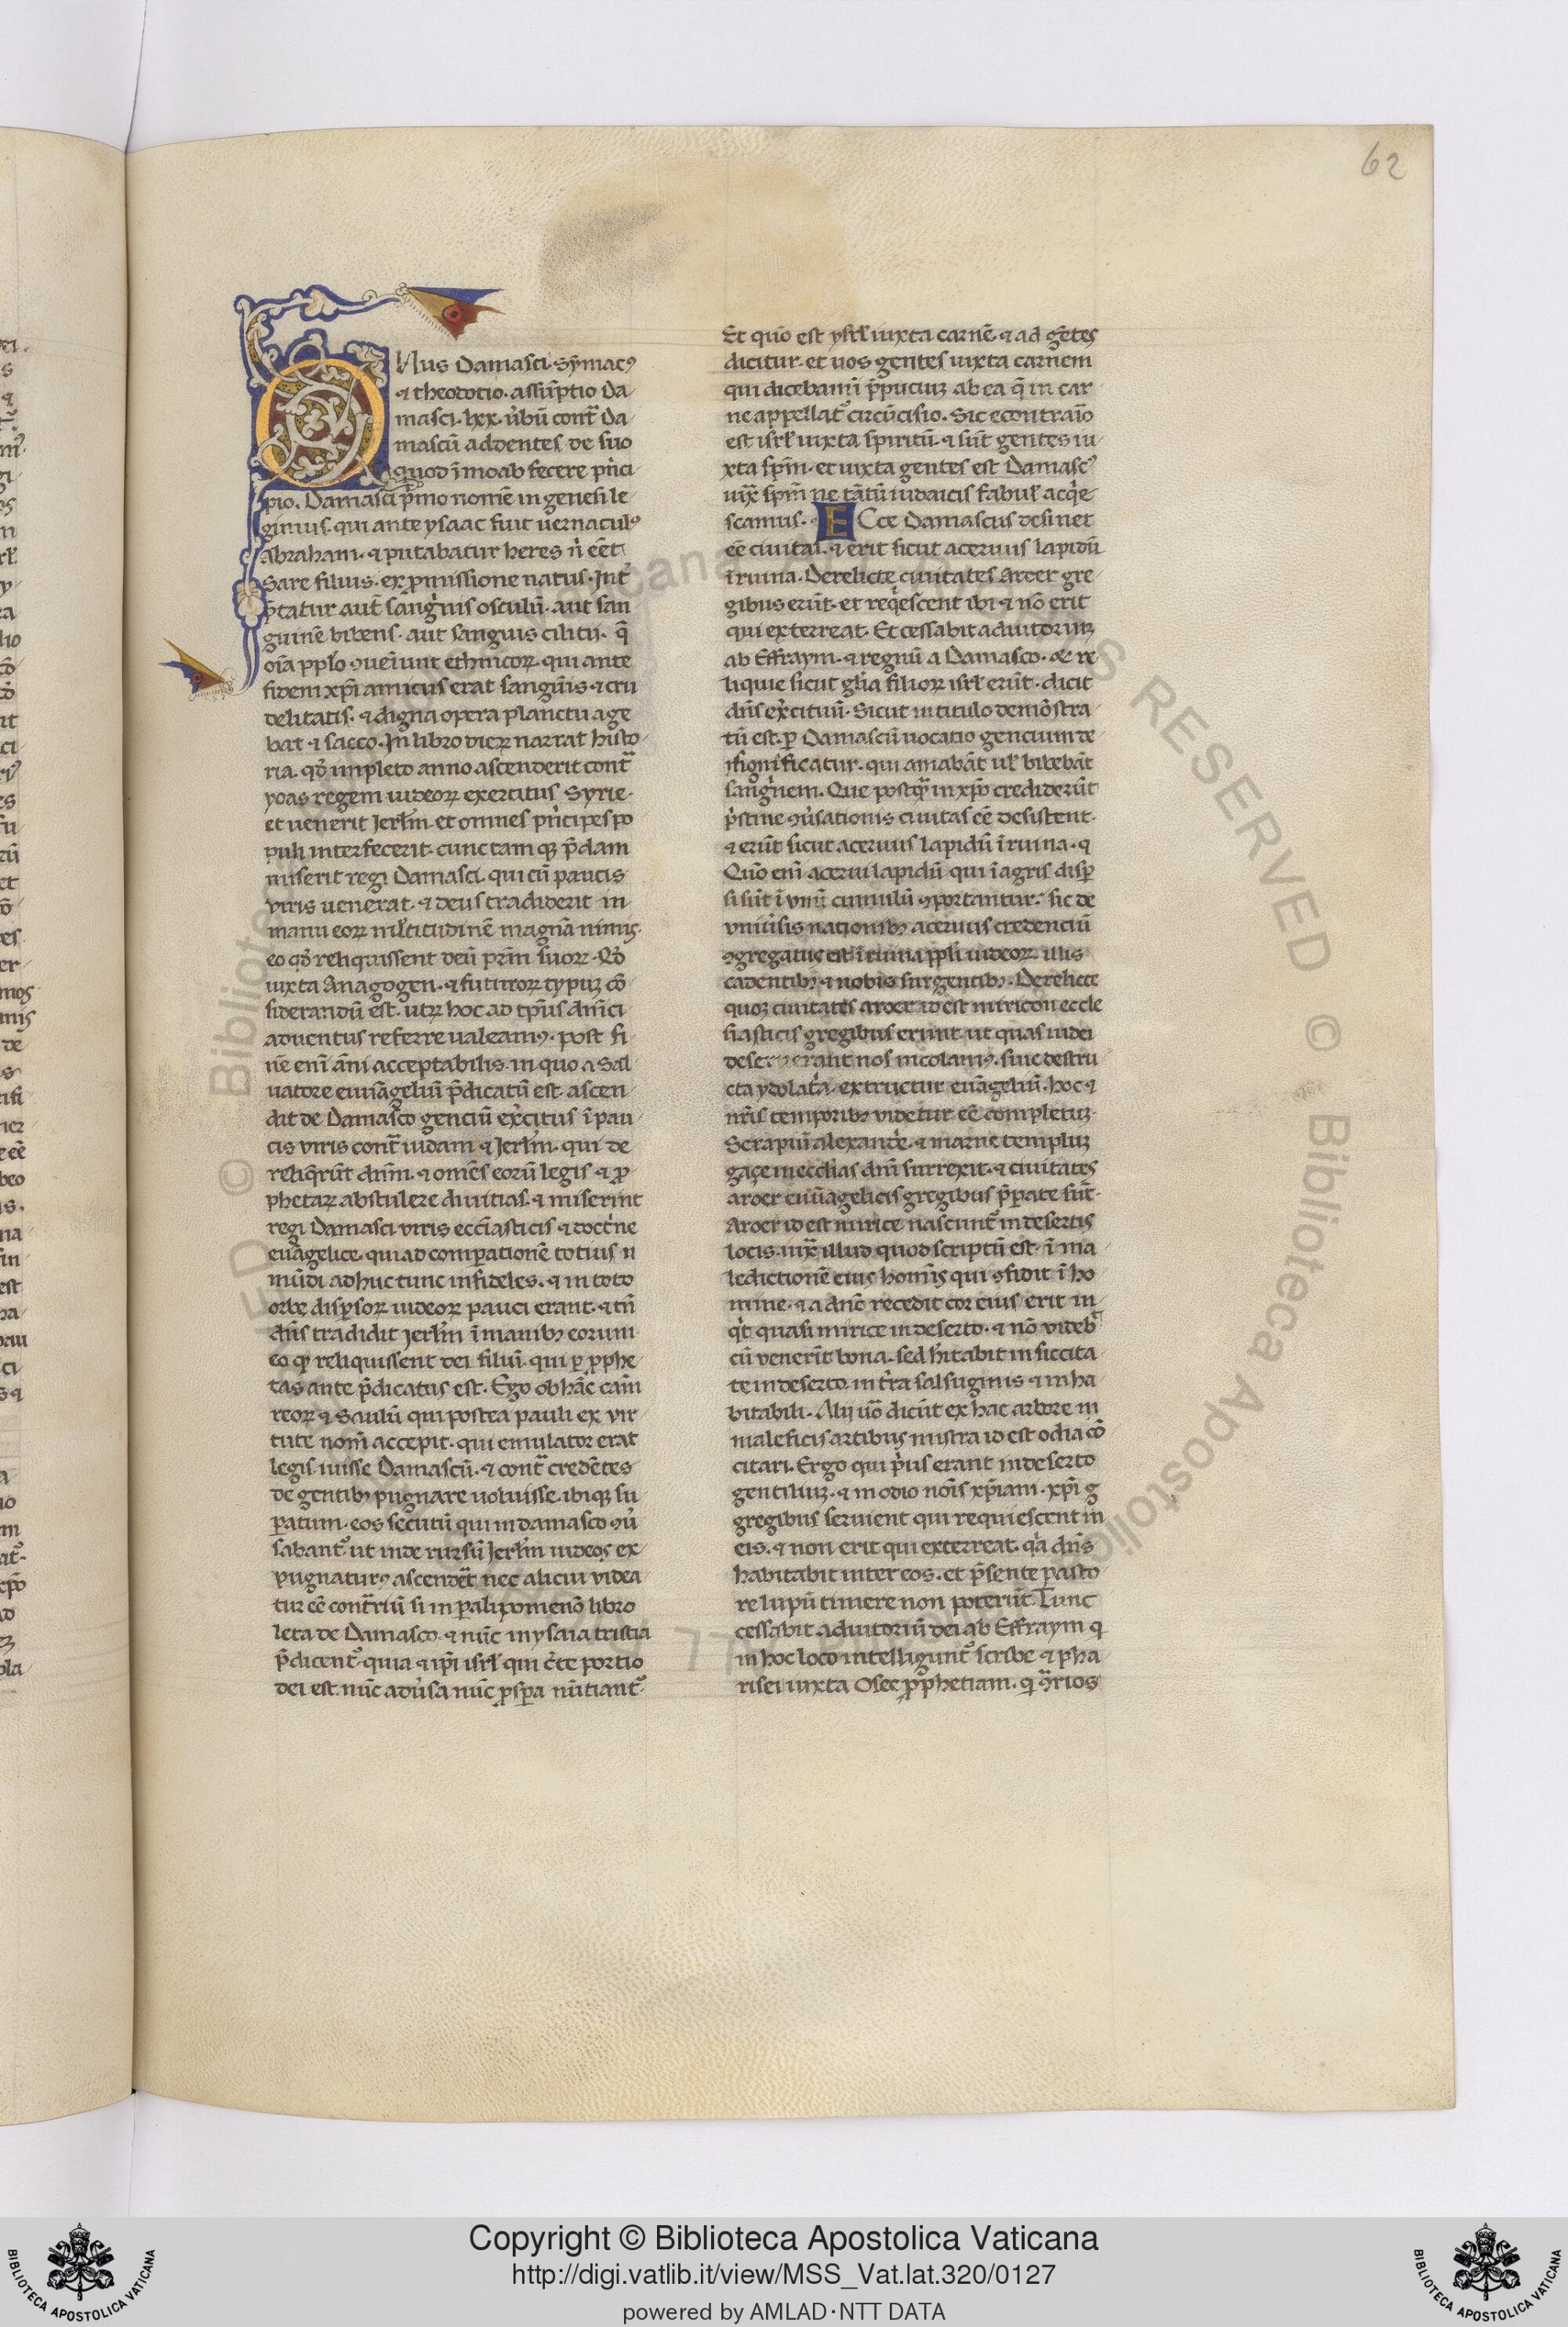 62
ONus Damasci. Symacꝰ
⁊ theodotio. assũptio Da
masci. lxx. ůbũ cont̃ Da
mascũ addentes de suo
quod ĩ moab fecere pⁱnci
pio. Damasci p̃mo nomẽ in genesi le
gimus. qui ante ysaac fuit uernaculꝰ
Abraham. ⁊ putabatur heres ñ eẽt
Sare filius. ex ꝓmissione natus. Int̃
p̃tatur aut̃ sangⁱnis osculũ. aut san
guinẽ bibens. aut sanguis cilitij. q̃
oĩa pplo ꝯueniunt ethnicoꝝ. qui ante
fidem xp̃i amicus erat sanguĩs. ⁊ cru
delitatis. ⁊ digna opera planctu age
bat ⁊ sacco. In libro dieꝝ narrat histo
ria. qď impleto anno ascenderit cont̃
yoas regem iudeoꝝ exercitus Syrie.
et uenerit Ierl̃m. et omnes pⁱncipes po
puli interfecerit. cunctam qꝫ p̃dam
miserit regi Damasci. qui cũ paucis
viris uenerat. ⁊ deus tradiderit in
manu eoꝝ mľtitudinẽ magnã nimis.
eo qď reliquissent deũ pr̃m suoꝝ. Qď
iuxta Anagogen. ⁊ futuroꝝ typuꝫ cõ
siderandũ est. utꝝ hoc ad tp̃us dñici
aduentus referre ualeamꝰ. post fi
nẽ eni ãni acceptabilis. in quo a Sal
uatore euuãgeliũ p̃dicatũ est. ascen
dit de Damasco genciũ ex̃citus ĩ pau
cis viris cont̃ iudam ⁊ Ierl̃m. qui de
reliq̃rũt dñm. ⁊ om̃s eorũ legis ⁊ ꝓ
phetaꝝ abstulere diuitias. ⁊ miserint
regi Damasci viris eccl̃iasticis ⁊ doctⁱne
euãgelice. qui ad comparationẽ totius
mũdi adhuc tunc infideles. ⁊ in toto
orbe dispsoꝝ iudeoꝝ pauci erant. ⁊ tñ
dñs tradidit Ierl̃m ĩ manibꝫ eorum
eo qꝫ reliquissent dei filiũ. qui ꝑ ꝓphe
tas ante p̃dicatus est. Ego ob hãc cãm
reoꝝ ⁊ Saulũ qui postea pauli ex vir
tute nom̃ accepit. qui emulator erat
legis. iuisse Damascũ. ⁊ cont̃ credẽtes
de gentibꝫ pugnare uoluisse. ibiqꝫ su
ꝑatum. eos secutũ qui in damasco ꝯů
sabant̃. ut inde rursũ Ierl̃m iudeos ex
pugnaturꝰ ascendẽt. nec alicui videa
tur eẽ cont̃riũ si in ꝑalipomenõ libro
leta de Damasco. ⁊ nũc in ysaia tristia
p̃dicent̃. quia ⁊ ip̃i isrľ qui c̃te portio
dei est. nũc adůsa nũc ꝓspa nũtiant̃.
Et quõ est ysrľ iuxta carnẽ. ⁊ ad gẽtes
dicitur. et uos gentes iuxta carnem
qui dicebamĩ p̃puciuꝫ ab ea q̃ in car
ne appellat̃ circũcisio. Sic econtraĩo
est isrľ iuxta spiritũ. ⁊ sũt gentes iu
xta sp̃m. et iuxta gentes est Damascꝰ
iux̃ sp̃m ne tãtũ iudaicis fabuľ acqⁱe
scamus. ECce Damascus desinet
eẽ ciuitas. ⁊ erit sicut aceruus lapidũ
ĩ ruina. Derelicte ciuitates Aroer gre
gibus erũt. et reqⁱescent ibi ⁊ nõ erit
qui exterreat. Et cessabit adiutoriuꝫ
ab Effraym. ⁊ regnũ a Damasco. ⁊ re
liquie sicut gľia filioꝝ isrľ erũt. dicit
dñs ex̃cituũ. Sicut in titulo demõstra
tũ est. ꝑ Damascũ uocatio gencium de
significatur. qui amabãt uľ bibebãt
sangⁱnem. Que postqᷓ in xp̃o crediderũt
pⁱstine ꝯůsationis ciuitas eẽ desistent.
⁊ erũt sicut aceruus lapidũ ĩ ruina. ⁊
Quõ eni acerui lapidũ qui ĩ agris disp
si sũt ĩ vnũ cumulũ ꝯportantur. sic de
vniůsis nationibꝫ aceruus credenciũ
ꝯgregatus est ĩ ruina ppľi iudeoꝝ. illis
cadentibꝫ ⁊ nobis surgentibꝫ. Derelicte
quoꝫ ciuitates aroer id est miricon eccle
siasticis gregibus erunt. ut quas iudei
deseruerant nos incolamꝰ. siue destru
cta ydolat̃a. extructur euãgeliũ. hoc ⁊
nr̃is temporibꝫ videtur eẽ completuꝫ.
Serapiũ alexandⁱe. ⁊ marne templuꝫ
gaçe in ecclias dñi surrexit. ⁊ ciuitates
aroer euuãgelicis gregibus p̃ꝑate sũt.
Aroer id est mirice nascunt̃ in desertis
locis. iux̃ illud quod scriptũ est. ĩ ma
ledictionẽ eius homĩs qui ꝯfidit ĩ ho
mine. ⁊ a dño recedit cor eius erit in
qⁱt quasi mirice in deserto. ⁊ nõ videb̃
cũ venerĩt bona. sed hⁱtabit in siccita
te in deserto. in t̃ra salsuginis ⁊ inha
bitabili. Alij ůo dicũt ex hac arbore in
maleficis artibus mistra id est odia cõ
citari. Ergo qui pⁱus erant in deserto
gentiliuꝫ. ⁊ in odio noĩs xp̃iani. xp̃i g
gregibus seruient qui requiescent in
eis. ⁊ non erit qui exterreat. qⁱa dñs
habitabit inter eos. et p̃sente pasto
re lupũ timere non poterũt. Tunc
cessabit adiutoriũ dei ab Effraym q
in hoc loco intelligunt̃ scribe ⁊ pha
risei iuxta Osee ꝓphetiam. q qᷓrios
Copyright © Biblioteca Apostolica Vaticana
http://digi.vatlib.it/view/MSS_Vat.lat.320/0127
powered by AMLAD·NTT DATA
BIBLIOTECA APOSTOLICA VATICANA
BIBLIOTECA APOSTOLICA VATICANA